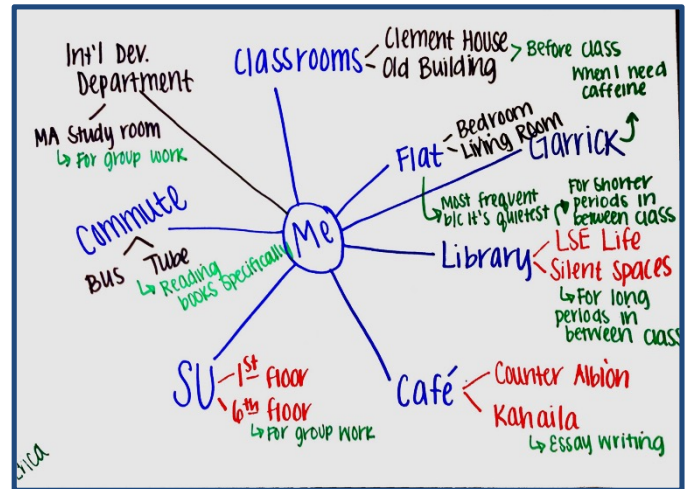 Int'l Dev.
Department
MA Study room
↳ For group work
Classrooms
Clement House
Old Building
> Before class
When I need
caffeine
Flat
Bedroom
Living Room
↳ Most frequent
b/c it's quietest
Garrick
Commute
BUS
Tube
↳ Reading
books specifically
Me
Library
For shorter
periods in
between class
LSE Life
Silent Spaces
↳ For long
periods in
between class
SU
1st floor
6th floor
↳ For group work
Café
Counter Albion
Kahaila
↳ Essay writing